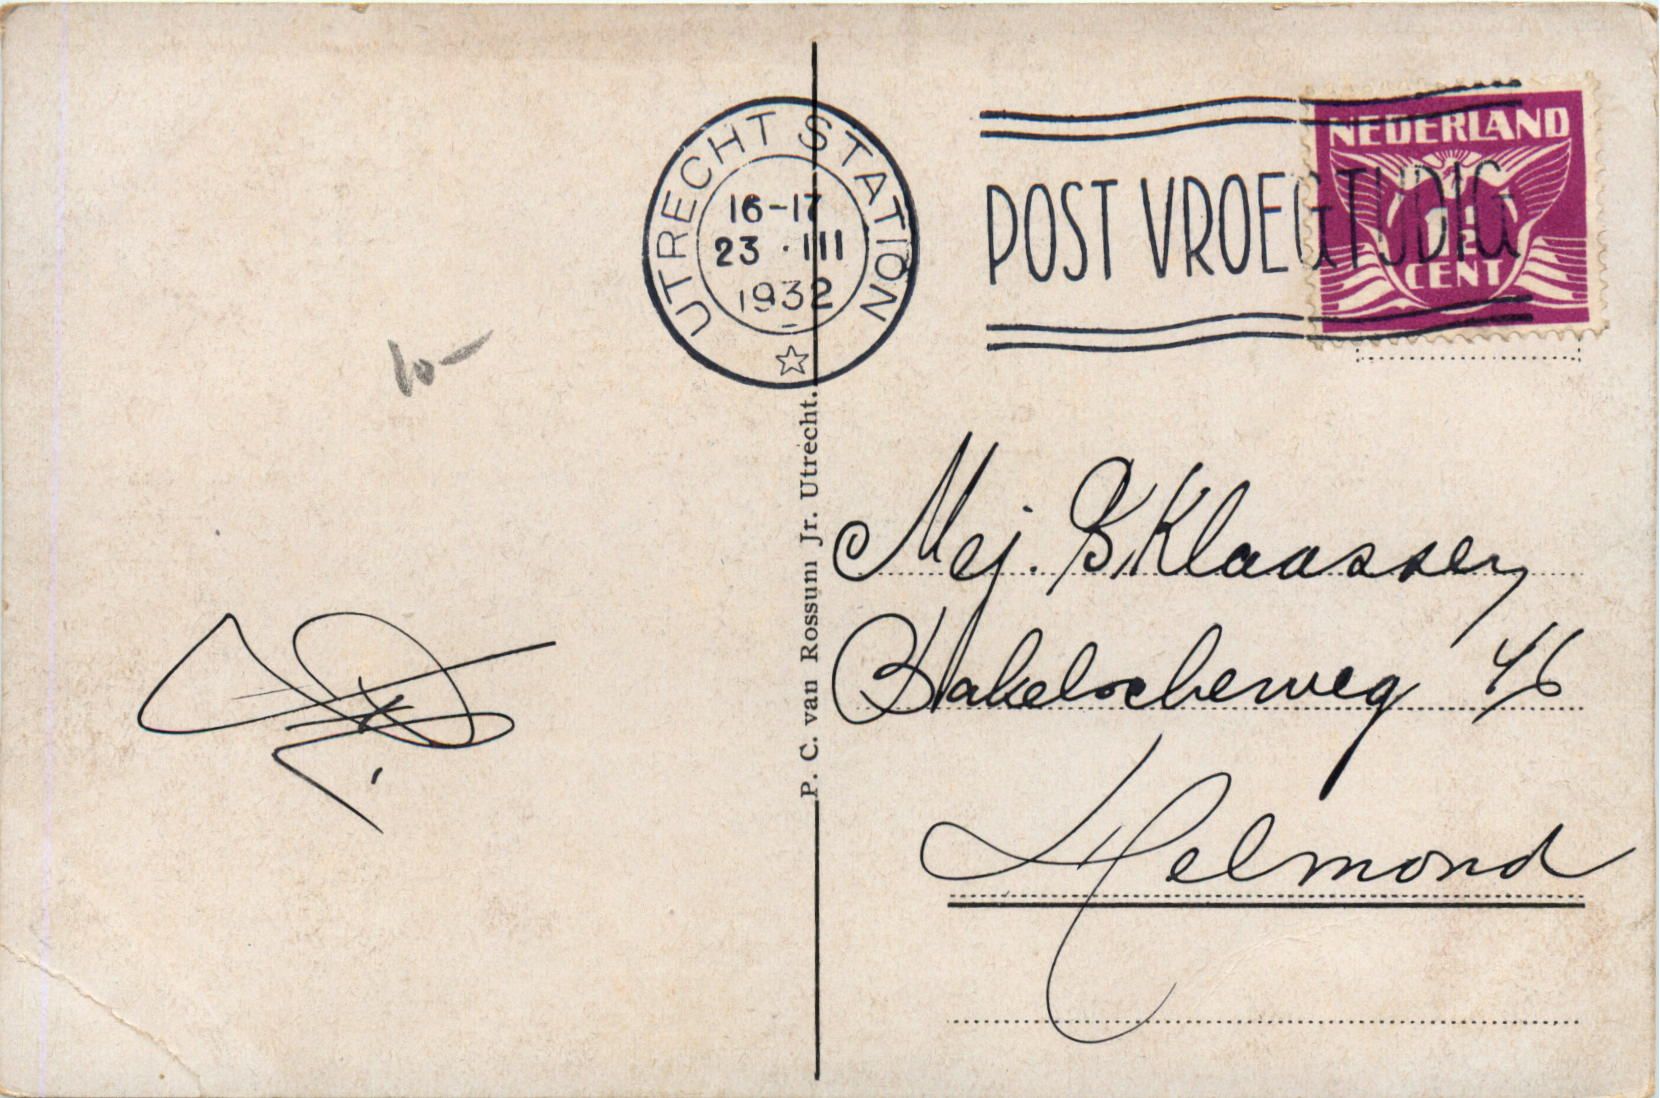 10-
UTRECHT STATION
16-17
23 · III
1932
POST VROEGTIJDIG
NEDERLAND
1½
CENT
P. C. van Rossum Jr. Utrecht.
Mej. B Klaassen
Bakelscheweg 46
Helmond